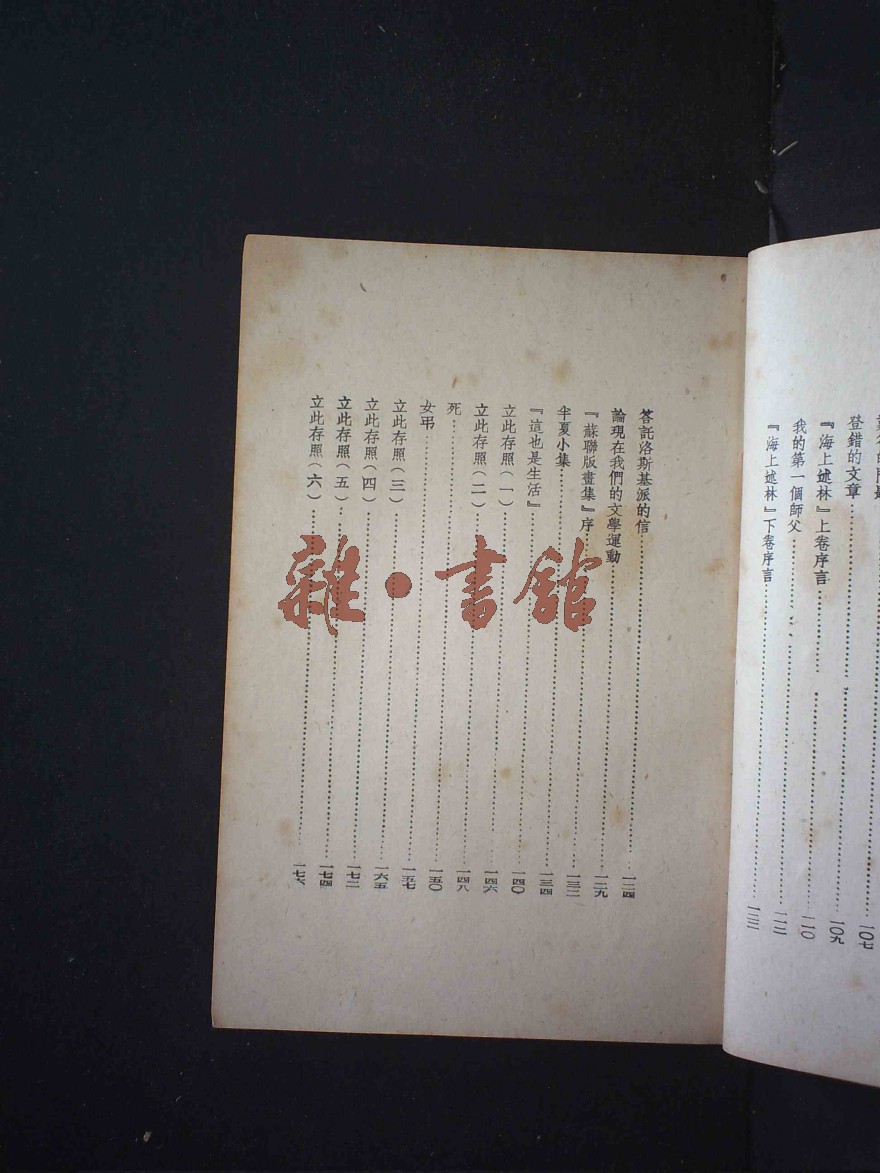 一〇七
登錯的文章…………一〇九
『海上述林』上卷序言…………一一〇
我的第一個師父…………一一二
『海上述林』下卷序言…………一二二
答託洛斯基派的信…………一二四
論現在我們的文學運動…………一二九
『蘇聯版畫集』序…………一三二
半夏小集…………一三四
『這也是生活』…………一四〇
立此存照(一)…………一四六
立此存照(二)…………一四八
死…………一五〇
女弔…………一五七
立此存照(三)…………一六五
立此存照(四)…………一七二
立此存照(五)…………一七四
立此存照(六)…………一七六
雜·書館